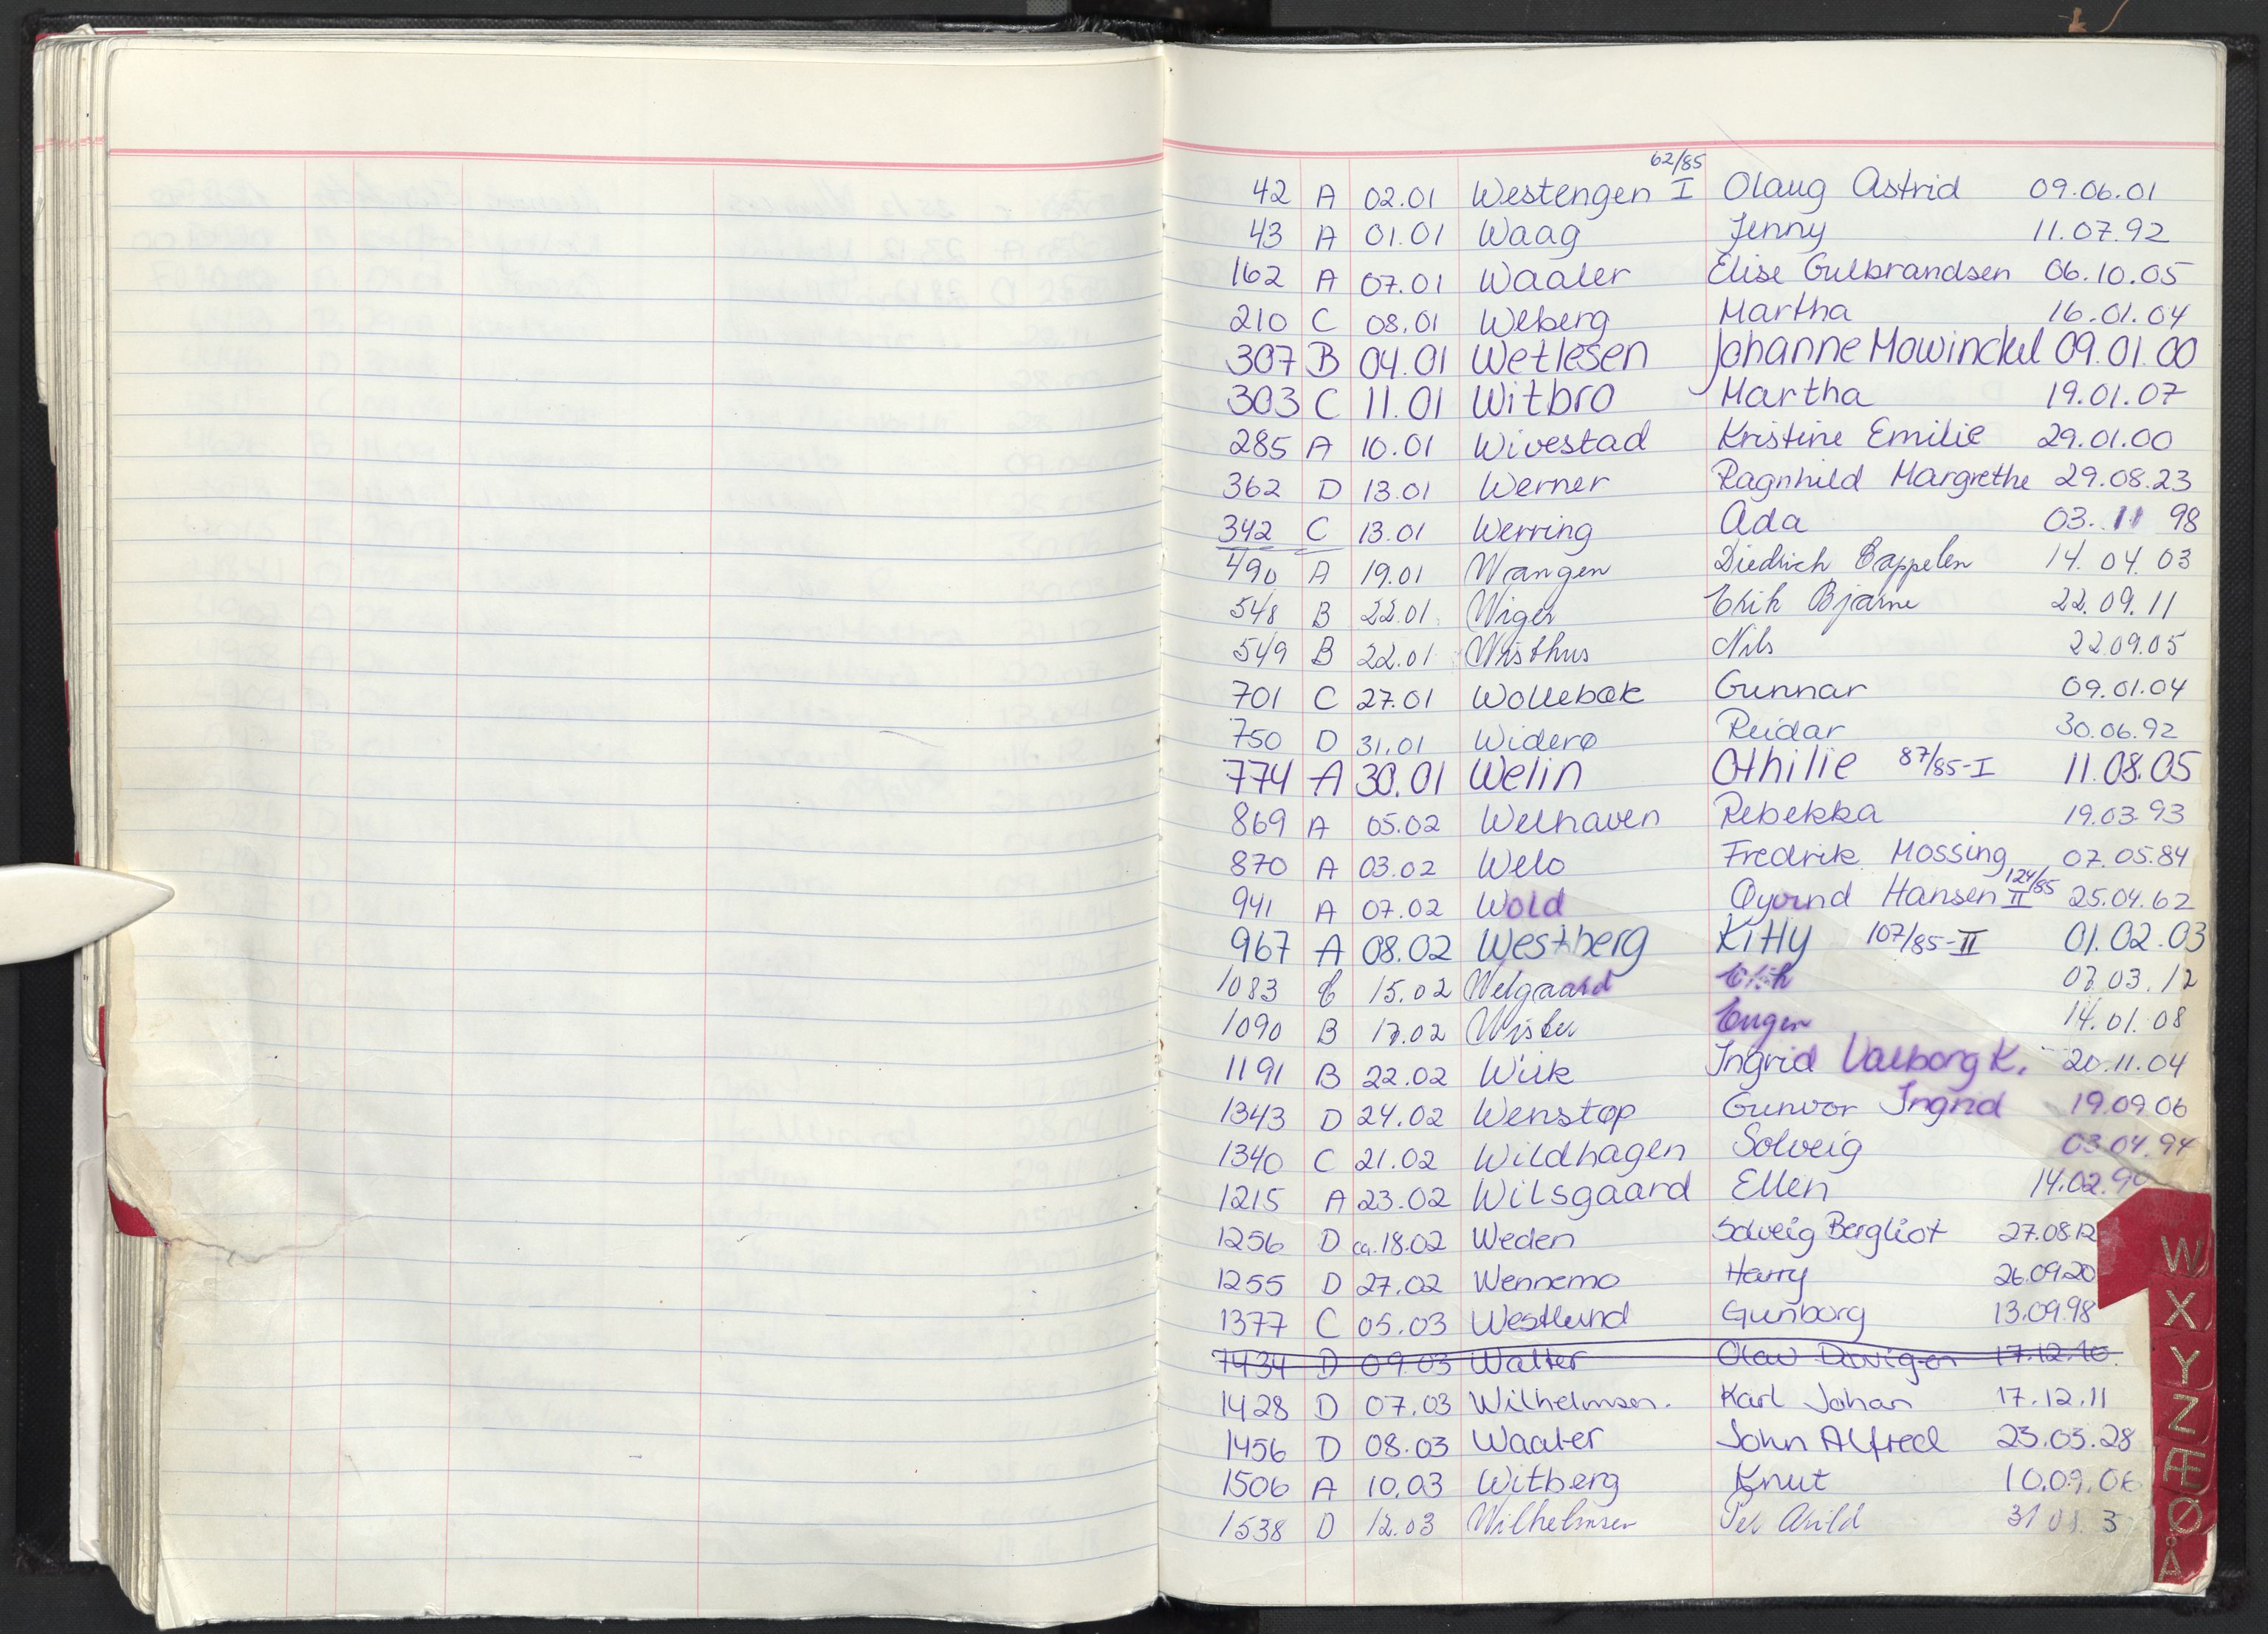 62/85
42 A 02.01 Westengen I Olaug Astrid 09.06.01
43 A 01.01 Waag Jenny 11.07.92
162 A 07.01 Waaler Elise Gulbrandsen 06.10.05
210 C 08.01 Weberg Martha 16.01.04
307 B 04.01 Wetlesen Johanne Mowinckel 09.01.00
303 C 11.01 Witbro Martha 19.01.07
285 A 10.01 Wivestad Kristine Emilie 29.01.00
362 D 13.01 Werner Ragnhild Margrethe 29.08.23
342 C 13.01 Werring Ada 03.11 98
490 A 19.01 Wrangen Diedrich Cappelen 14.04.03
548 B 22.01 Wiger Erik Bjarne 22.09.11
549 B 22.01 Wisthus Nils 22.09.05
701 C 27.01 Wollebæk Gunnar 09.01.04
750 D 31.01 Widerø Reidar 30.06.92
774 A 30.01 Welin Othilie 87/85-I 11.08.05
869 A 05.02 Welhaven Rebekka 19.03.93
870 A 03.02 Welo Fredrik Mossing 07.05.84
941 A 07.02 Wold Øyvind Hansen 124/85 II 25.04.62
967 A 08.02 Westberg Kitty 107/85-II 01.02.03
1083 C 15.02 Welgaard Erik 07.03.12
1090 B 17.02 Wister Eugen 14.01.08
1191 B 22.02 Wiik Ingrid Valborg K. 20.11.04
1343 D 24.02 Wenstøp Gunvor Ingrid 19.09.06
1340 C 21.02 Wildhagen Solveig 03.04.94
1215 A 23.02 Wilsgaard Ellen 14.02.90
1256 D ca.18.02 Weden Solveig Bergliot 27.08.12
1255 D 27.02 Wennemo Harry 26.09.20
1377 C 05.03 Westlund Gunborg 13.09.98
1434 D 09.03 Walter Olav 17.12.10.
1428 D 07.03 Wilhelmsen. Karl Johan 17.12.11
1456 D 08.03 Waaler John Alfred 23.03.28
1506 A 10.03 Witberg Knut 10.09.06
1538 D 12.03 Wilhelmsen Per Arild 31
W
X
Y
Z
Æ
Ø
Å